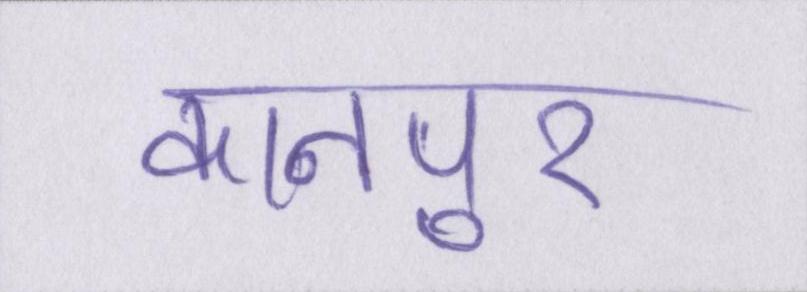 कानपुर